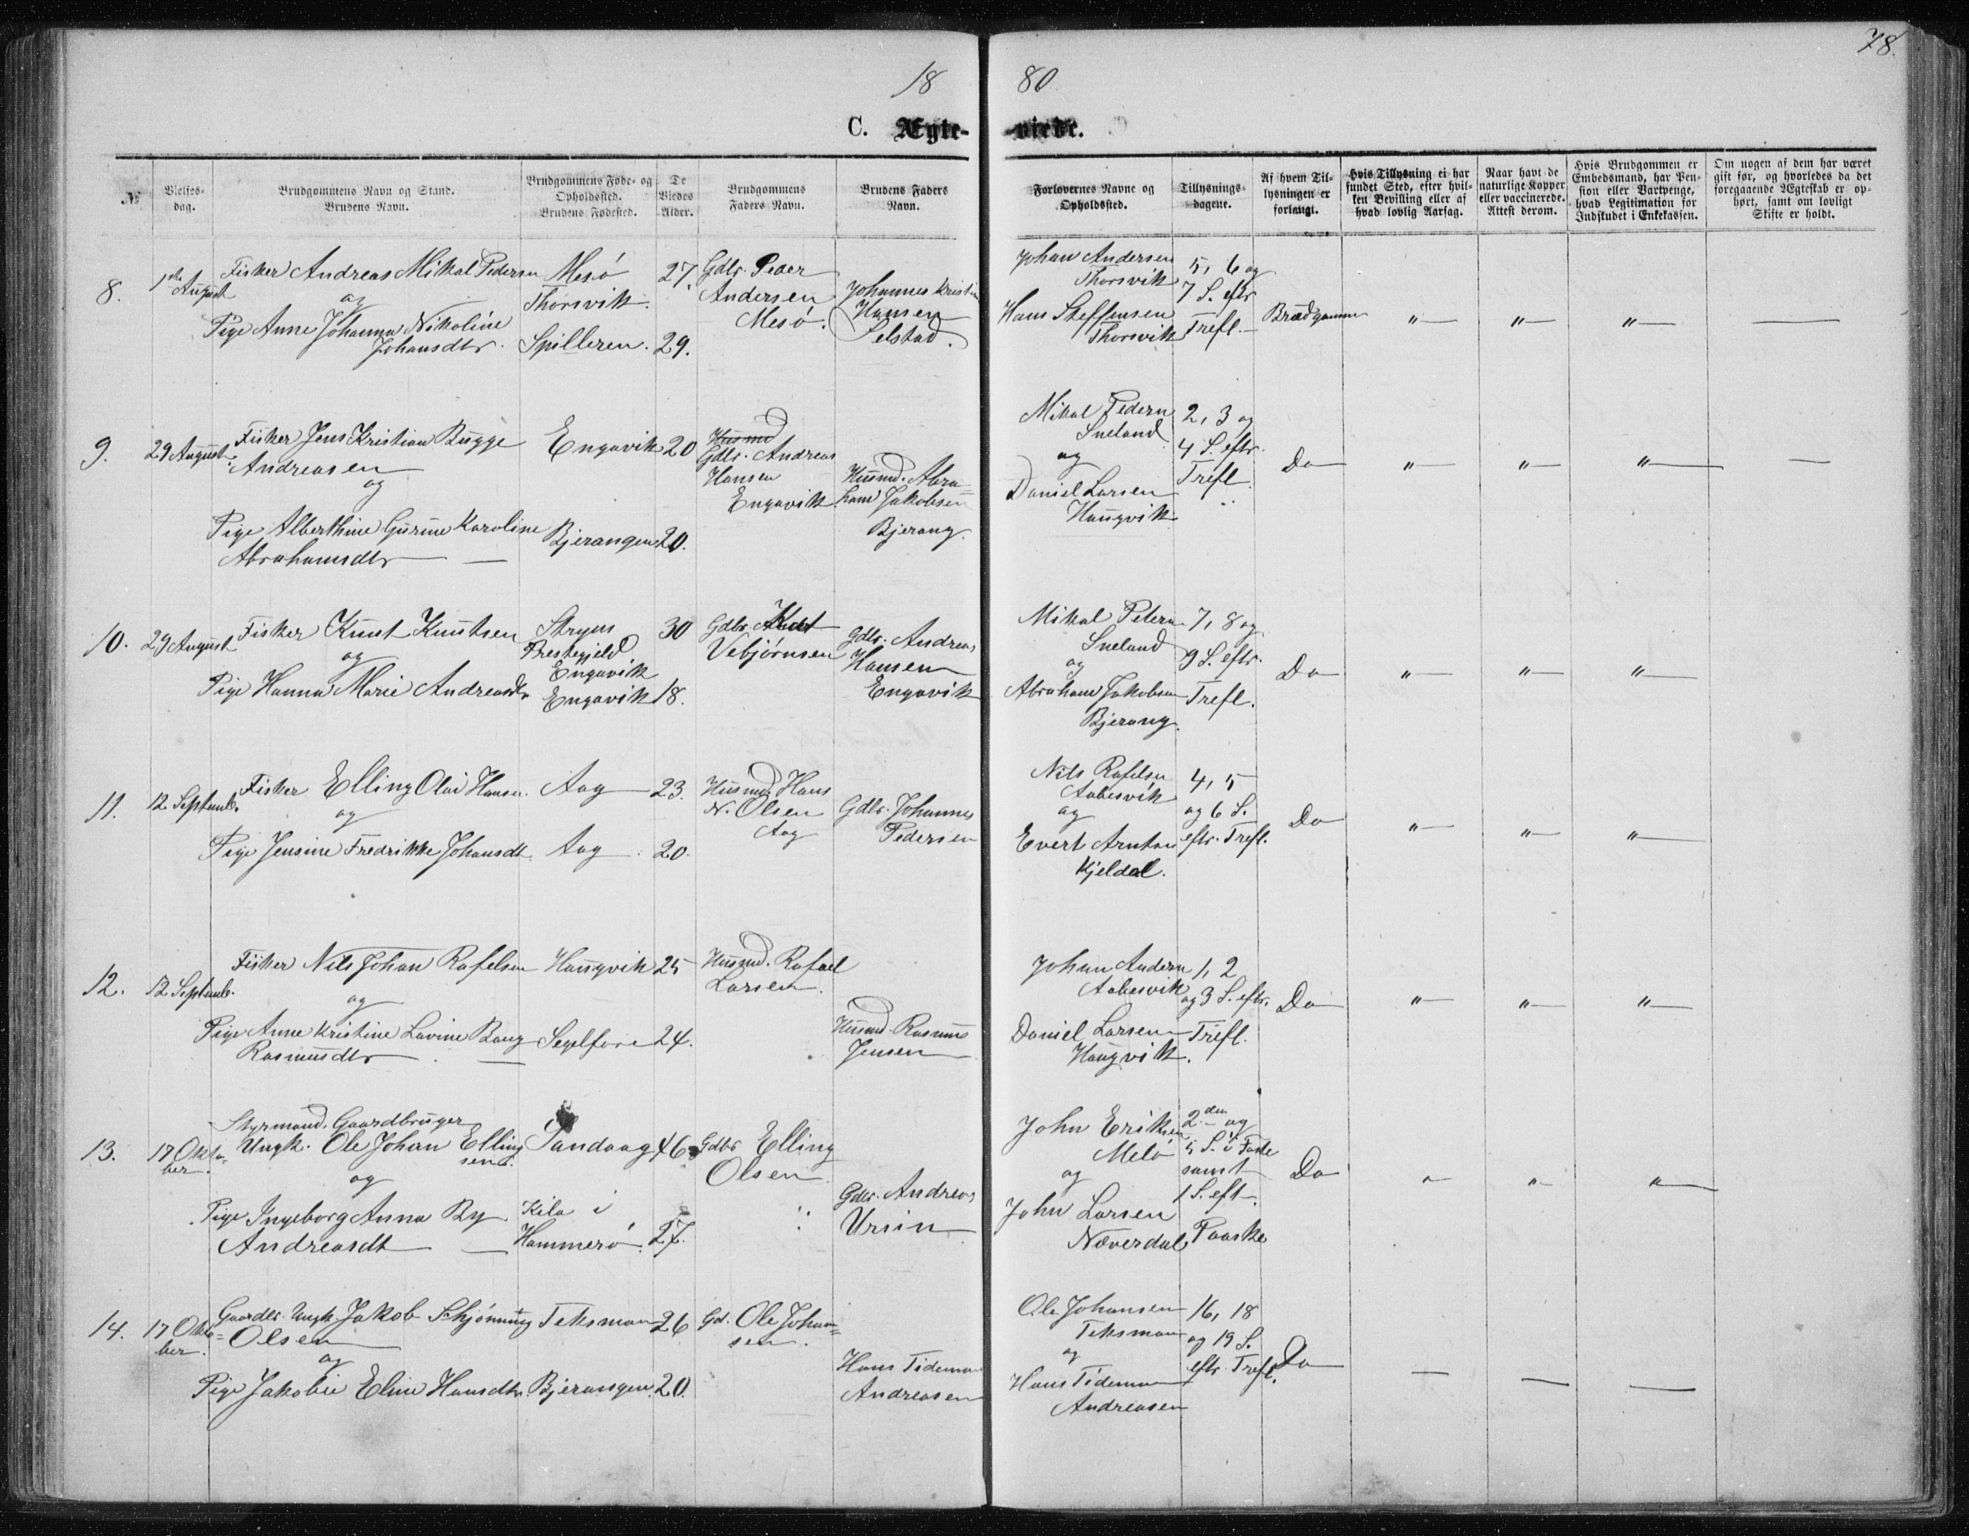 78.
18 80
C. Ægte- viede.
№
Vielses-
dag.
Brudgommens Navn og Stand.
Brudens Navn.
Brudgommens Føde- og
Opholdssted.
Brudens Fødested.
De
Viedes
Alder.
Brudgommens
Faders Navn.
Brudens Faders
Navn.
Forlovernes Navne og
Opholdssted.
Tillysnings-
dagene.
Af hvem Til-
lysningen er
forlangt.
Hvis Tillysning ei har
fundet Sted, efter hvil-
ken Bevilling eller af
hvad lovlig Aarsag.
Naar havt de
naturlige Kopper
eller vaccinerede.
Attest derom.
Hvis Brudgommen er
Embedsmand, har Pen-
sion eller Vartpenge,
hvad Legitimation for
Indskudet i Enkekassen.
Om nogen af dem har været
gift før, og hvorledes da det
foregaaende Ægteskab er op-
hørt, samt om lovligt
Skifte er holdt.
8.
1ste August
Fisker Andreas Mikal Pedersen
og
Pige Anne Johanna Nikoline
Johansdtr.
Mesö
Thorsvik.
Spilleren.
27.
29.
Gdbr. Peder
Andersen
Mesö.
Johannes Kristian
Hansen
Selstad.
Johan Andersen
Thorsvik
Hans Steffensen
Thorsvik
5, 6 og
7 S. eftr
Trefl.
Brudgommen
" " "
9.
29 August
Fisker Jens Kristian Bugge
Andreasen
og
Pige Alberthine Gurine Karoline
Abrahamsdtr
Engavik
Bjerangen
20
20.
Husmd
Gdbr. Andreas
Hansen
Engavik
Husmd. Abra-
ham Jakobsen
Bjerang.
Mikal Pedersn
Sneland
og
Daniel Larsen
Haugvik
2, 3 og
4 S. eftr.
Trefl.
Do
" " "
10.
29 August
Fisker Knut Knutsen
og
Pige Hanna Marie Andreasdtr
Stryns
Prestegjeld
Engavik
Engavik
30
18.
Gdbr. Knut
Vebjørnsen
Gdbr. Andreas
Hansen
Engavik
Mikal Petersn
Sneland
og
Abraham Jakobsen
Bjerang.
7, 8 og
9 S. eftr.
Trefl.
Do
" " "
11.
12 Septemb.
Fisker Elling Olai Hansen.
og
Pige Jensine Fredrikke Johansdt.
Aag
Aag
23.
20.
Husmd. Hans
N. Olsen
Aag
Gdbr. Johannes
Pedersen
Nils Rafelsn
Aabesvik
og
Evert Arntsen
Kjeldal.
4, 5
og 6 S.
eftr. Trefl.
Do
" " "
12.
12 Septemb.
Fisker Nils Johan Rafelsen
og
Pige Anne Kristine Lovine Bang
Rasmusdtr
Haugvik
Segelfore
25
24.
Husmd. Rafael
Larsen.
Husmd. Rasmus
Jensen
Johan Andersn
Aabesvik
Daniel Larsen
Haugvik.
1, 2
og 3 S. eftr.
Trefl.
Do
" " "
13.
17 Okto-
ber.
Styrmand, Gaardbruger
Ungk. Ole Johan Elling
sen.
og
Pige Ingeborg Anna By
Andreasdt
Sandaag
Kila i
Hammerö.
46
27.
Gdbr Elling
Olsen
Gdbr. Andreas
Ursin
John Eriksen
Melö
og
John Larsen
Næverdal
2den og
5 S. i Faste
samt
1 S. eft.
Paaske
Do
" " "
14.
17 Okto-
ber.
Gaardbr. Ungk Jakob Schjønning
Olsen
og
Pige Jakobie Eline Hansdtr
Teksmon
Bjerangen.
26
20.
Gd. Ole Johan-
sen.
Hans Tideman
Andreasen
Ole Johansen
Teksmon
og
Hans Tideman
Andreasen
16, 18
og 19 S.
eftr. Trefl.
Do